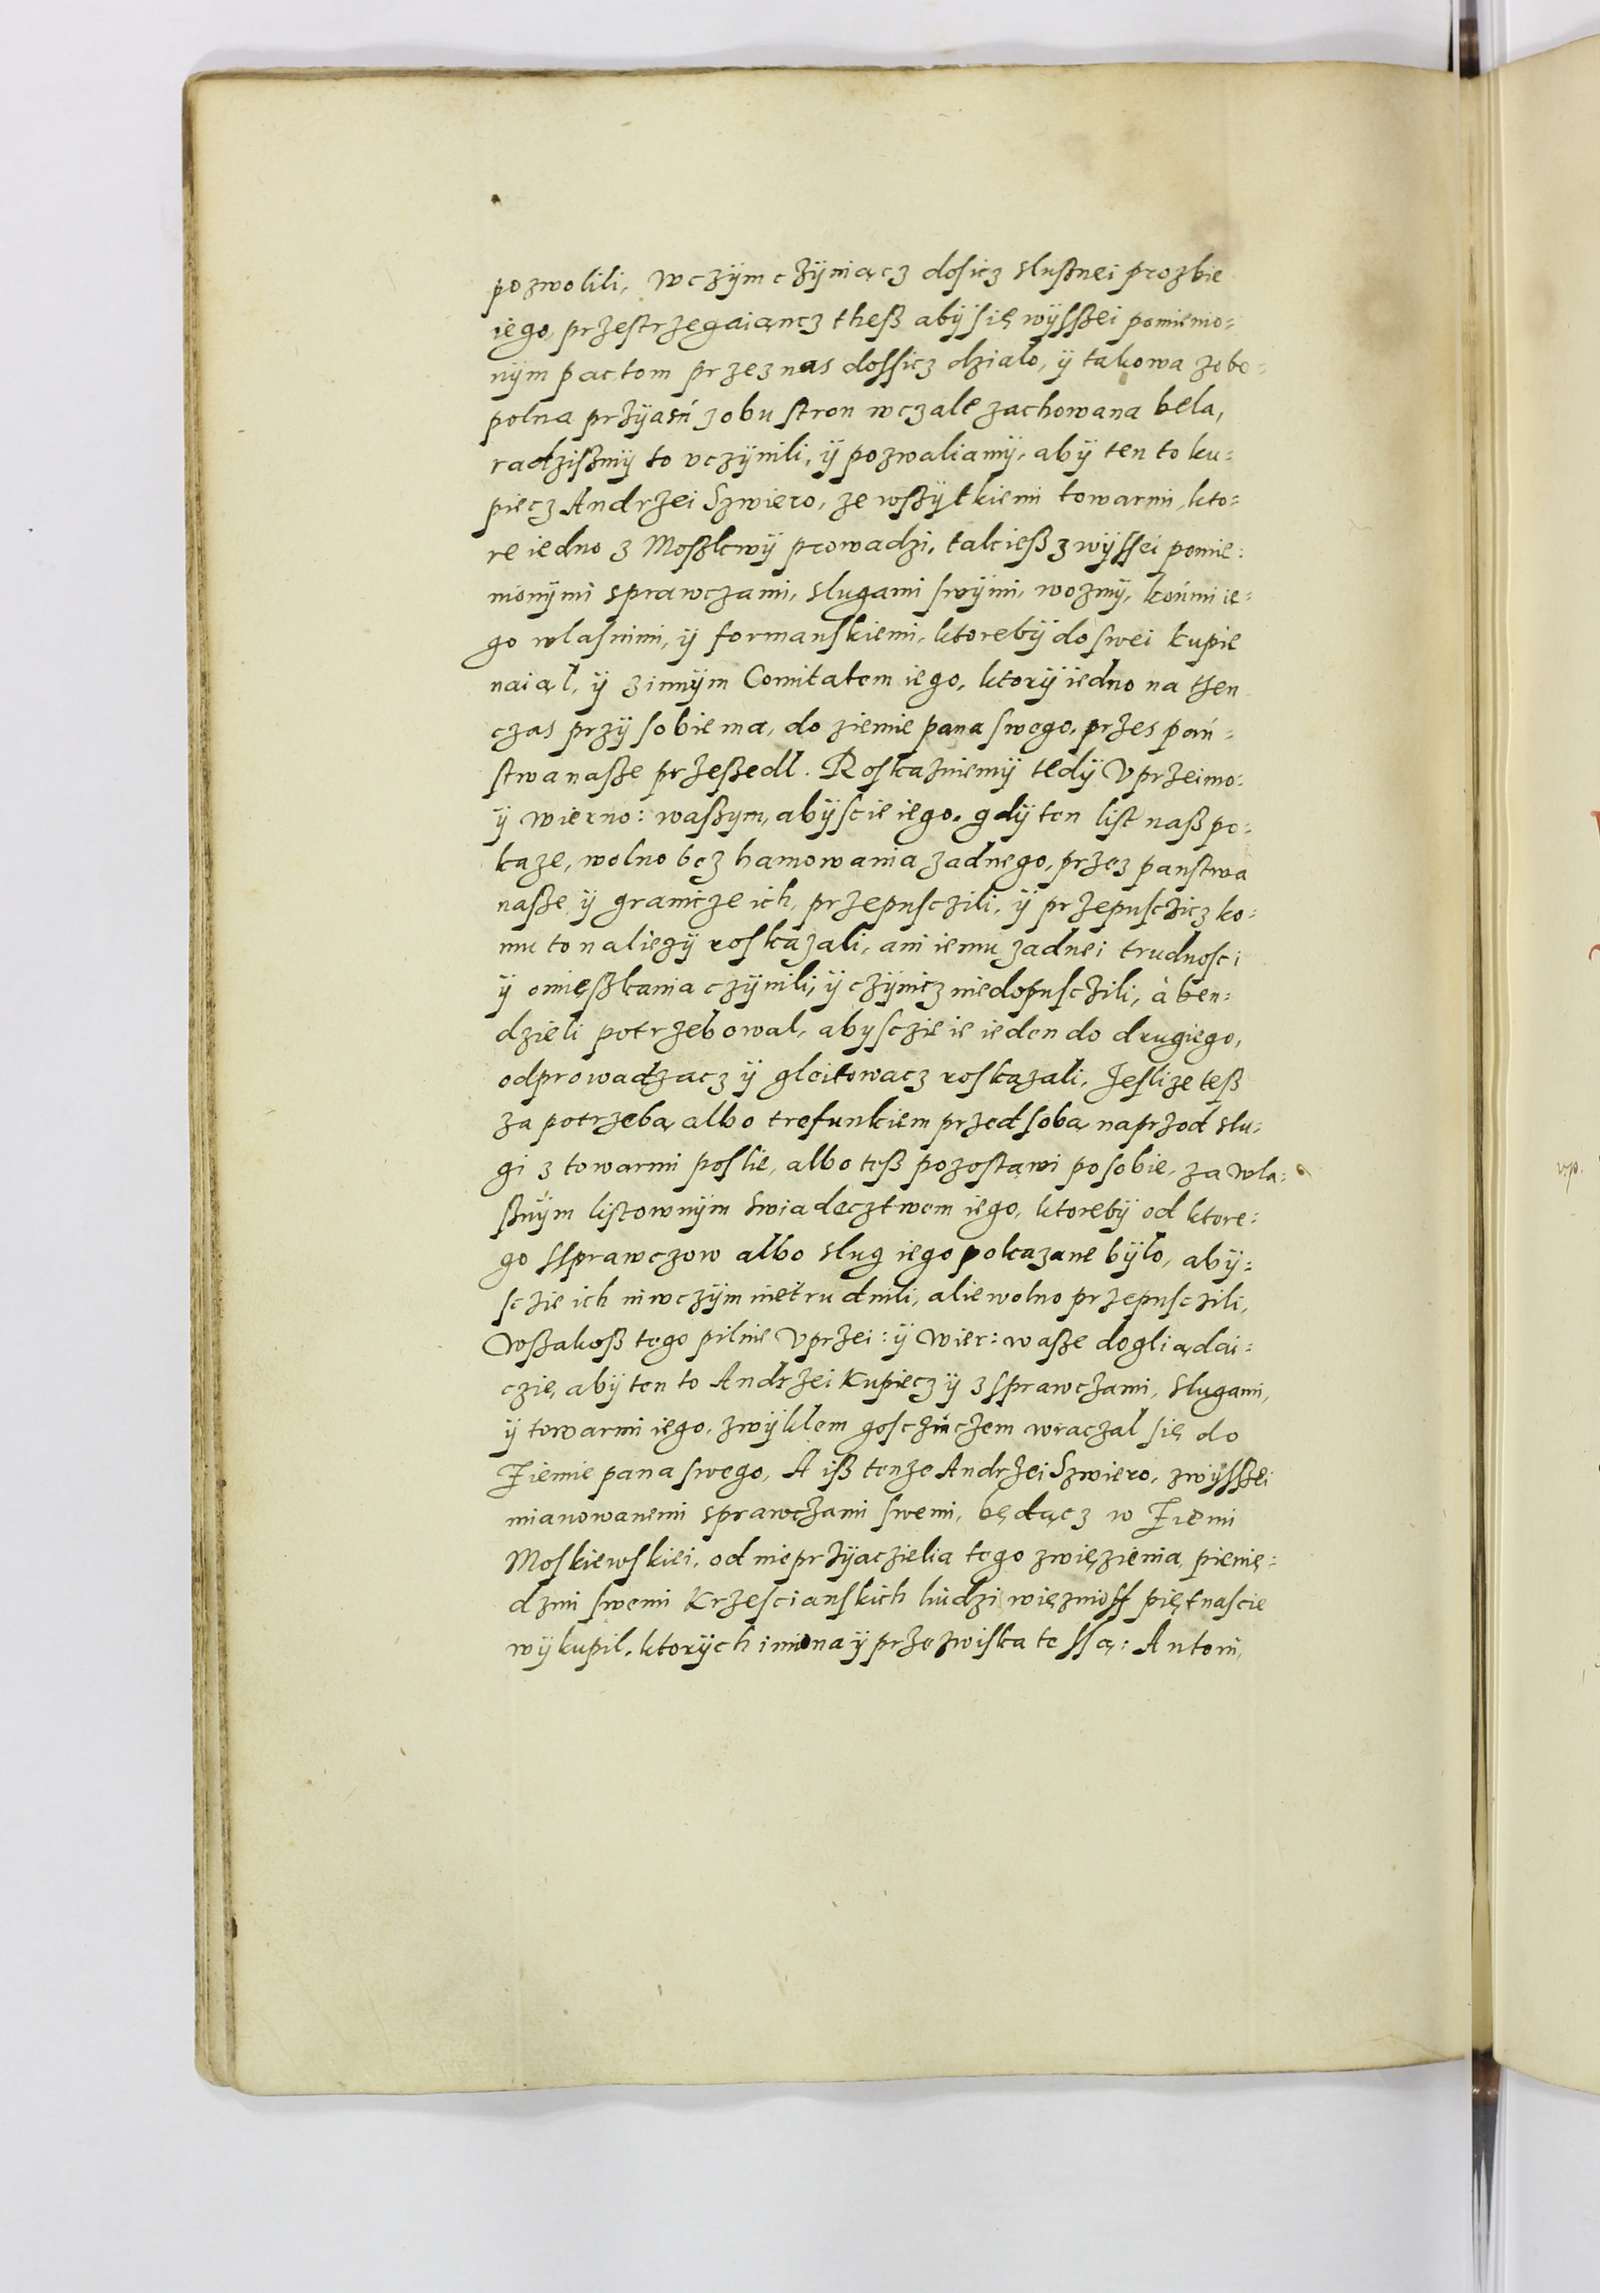 pozwolili, wczÿm czÿniącz dosicz slusznei prozbie
iego, przestrzegaiancz thesz abÿ się wÿsszei pomienio=
nÿm pactom przez nas dossicz dzialo, ÿ takowa zobo=
polna przÿasń z obu stron wczale zachowana bela,
radziszmÿ to vczÿnili, ÿ pozwaliamÿ, abÿ ten to ku=
piecz Andrzei Szwiero, ze wszÿtkiemi towarmi, kto=
re iedno z Moszkwÿ prowadzi, takiesz z wÿssei pomie=
nionÿmi sprawczami, slugami swÿmi, wozmÿ, końmi ie=
go wlasnimi, ÿ formanskiemi, ktorebÿ do swei kupie
naiąl, ÿ z innÿm Comitatem iego, ktorÿ iedno na then
czas przÿ sobie ma, do ziemie pana swego, przes pań=
stwa nasze przeszedl. Roskazuiemÿ tedÿ Vprzeimo:
ÿ wierno: waszym, abÿscie iego, gdÿ ten list nasz po=
kaze, wolno bez hamowania zadnego, przez panstwa
nasze ÿ granicze ich, przepusczili, ÿ przepusczicz ko=
mu to naliezÿ roskazali, ani iemu zadnei trudnosci
ÿ omięszkania czÿnili, ÿ czÿnicz niedopusczili, à ben=
dzieli potrzebowal, abysczie ie ieden do drugiego,
odprowadzacz ÿ gleitowacz roskazali. Jeslize tesz
za potrzebą albo trefunkiem przed sobą naprzod slu=
gi z towarmi poslie, albo tesz pozostawi po sobie, za wla=
sznÿm listownÿm swiadecztwem iego, ktorebÿ od ktore=
go ssprawczow albo slug iego pokazane bÿlo, abÿ=
sczie ich niwczÿm nietrudnili, alie wolno przepusczili,
Wszakosz tego pilnie Vprzei: ÿ Wier: wasze dogliądai=
czie, abÿ ten to Andrzei Kupiecz ÿ z sprawczami, slugami,
ÿ towarmi iego, zwÿklem gosczinczem wraczal się do
Ziemie pana swego, A isz tenze Andrzei Szwiero, z wÿsszei
mianowanemi sprawczami swemi, będącz w Ziemi
Moskiewskiei, od nieprzÿacziela tego z więzienia, pienię=
dzmi swemi Krzescianskich liudzi więznioss piętnascie
wÿkupil, ktorÿch imiona ÿ przezwiska te ssą: Antoni,